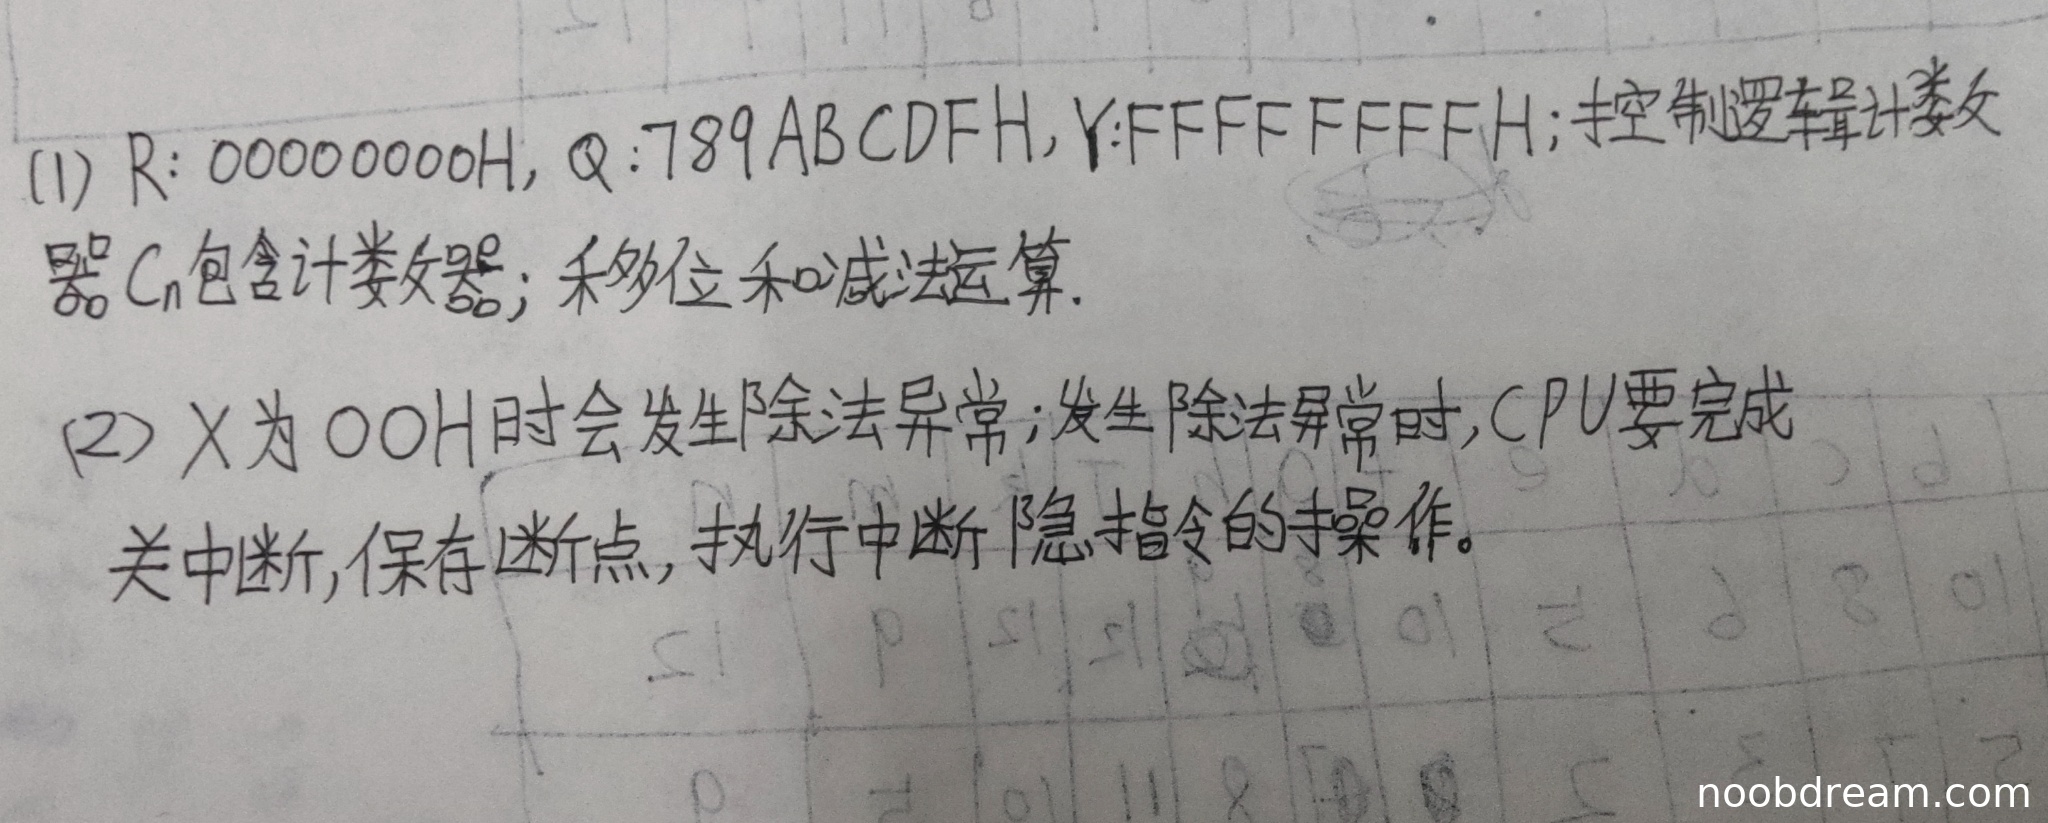 (1) R: 00000000H, Q:789ABCDFH, Y:FFFFFFFFH;控制逻辑计数
器Cn包含计数器;移位和减法运算.
(2) X为00H时会发生除法异常;发生除法异常时,CPU要完成
关中断,保存断点,执行中断隐指令的操作。
noobdream.com